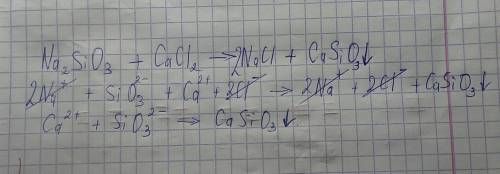 Na₂SiO₃ + CaCl₂ → 2NaCl + CaSiO₃↓
2Na⁺ + SiO₃²⁻ + Ca²⁺ + 2Cl⁻ → 2Na⁺ + 2Cl⁻ + CaSiO₃↓
Ca²⁺ + SiO₃²⁻ → CaSiO₃↓